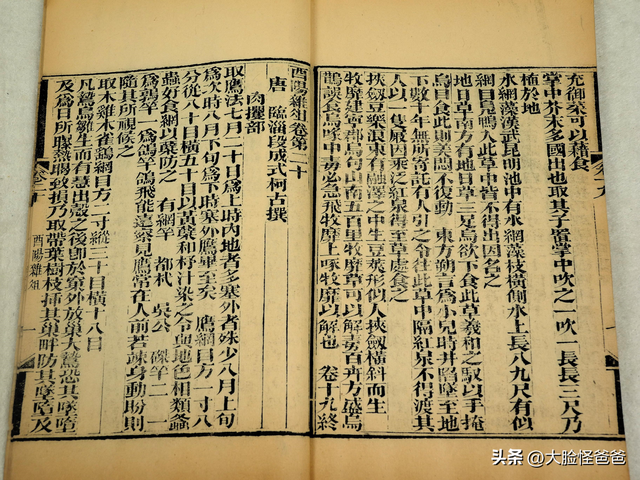 充御菜可以藉食
掌中芥末多國出也取其子置掌中吹之一吹一長長三尺乃
植於地
水網藻漢武昆明池中有水網藻枝橫側水上長八九尺有似
網目鳧鴨入此草中皆不得出因名之
地日草南方有地日草三足烏欲下食此草羲和之馭以手掩
烏目食此則美悶不復動 東方朔言爲小兒時井陷墜至地
下數十年無所寄託有人引之令往此草中隔紅泉不得渡其
人以一隻屐因乘泛紅泉得至草處食之
挾劒豆樂浪東有融澤之中生豆莢形似人挾劒橫斜而生
牧靡建寧郡烏句山南五百里牧靡可以解毒百卉方盛烏
鵲誤食烏喙中毒必急飛牧靡上啄牧靡以解也 卷十九終
卷十九
酉陽雜俎卷第二十
唐 臨淄段成式柯古撰
肉攫部
取鷹法七月二十日爲上時內地者多塞外者殊少八月上旬
爲次時八月下旬爲下時塞外鷹畢至矣 鷹網目方一寸八
分從八十目橫五十目以黃蘖和杼汁染之令與地色相類螽
蟲好食網以蘖防之 有網竿 都杙 吳公 磔竿二一
爲鶉竿一爲鴿竿鴿飛能遠察見鷹常在人前若竦身動盼則
隨其所視候之
取木雞木雀鷂網目方二寸縱三十目橫十八目
凡鷙鳥雛生而有慧出殼之後即於窠外放巢大鷙恐其墜墮
及爲日所曝熱暍致損乃取帶葉樹枝插其巢畔防其墜墮及
卷二十
酉陽雜俎
一
头条 @大脸怪爸爸